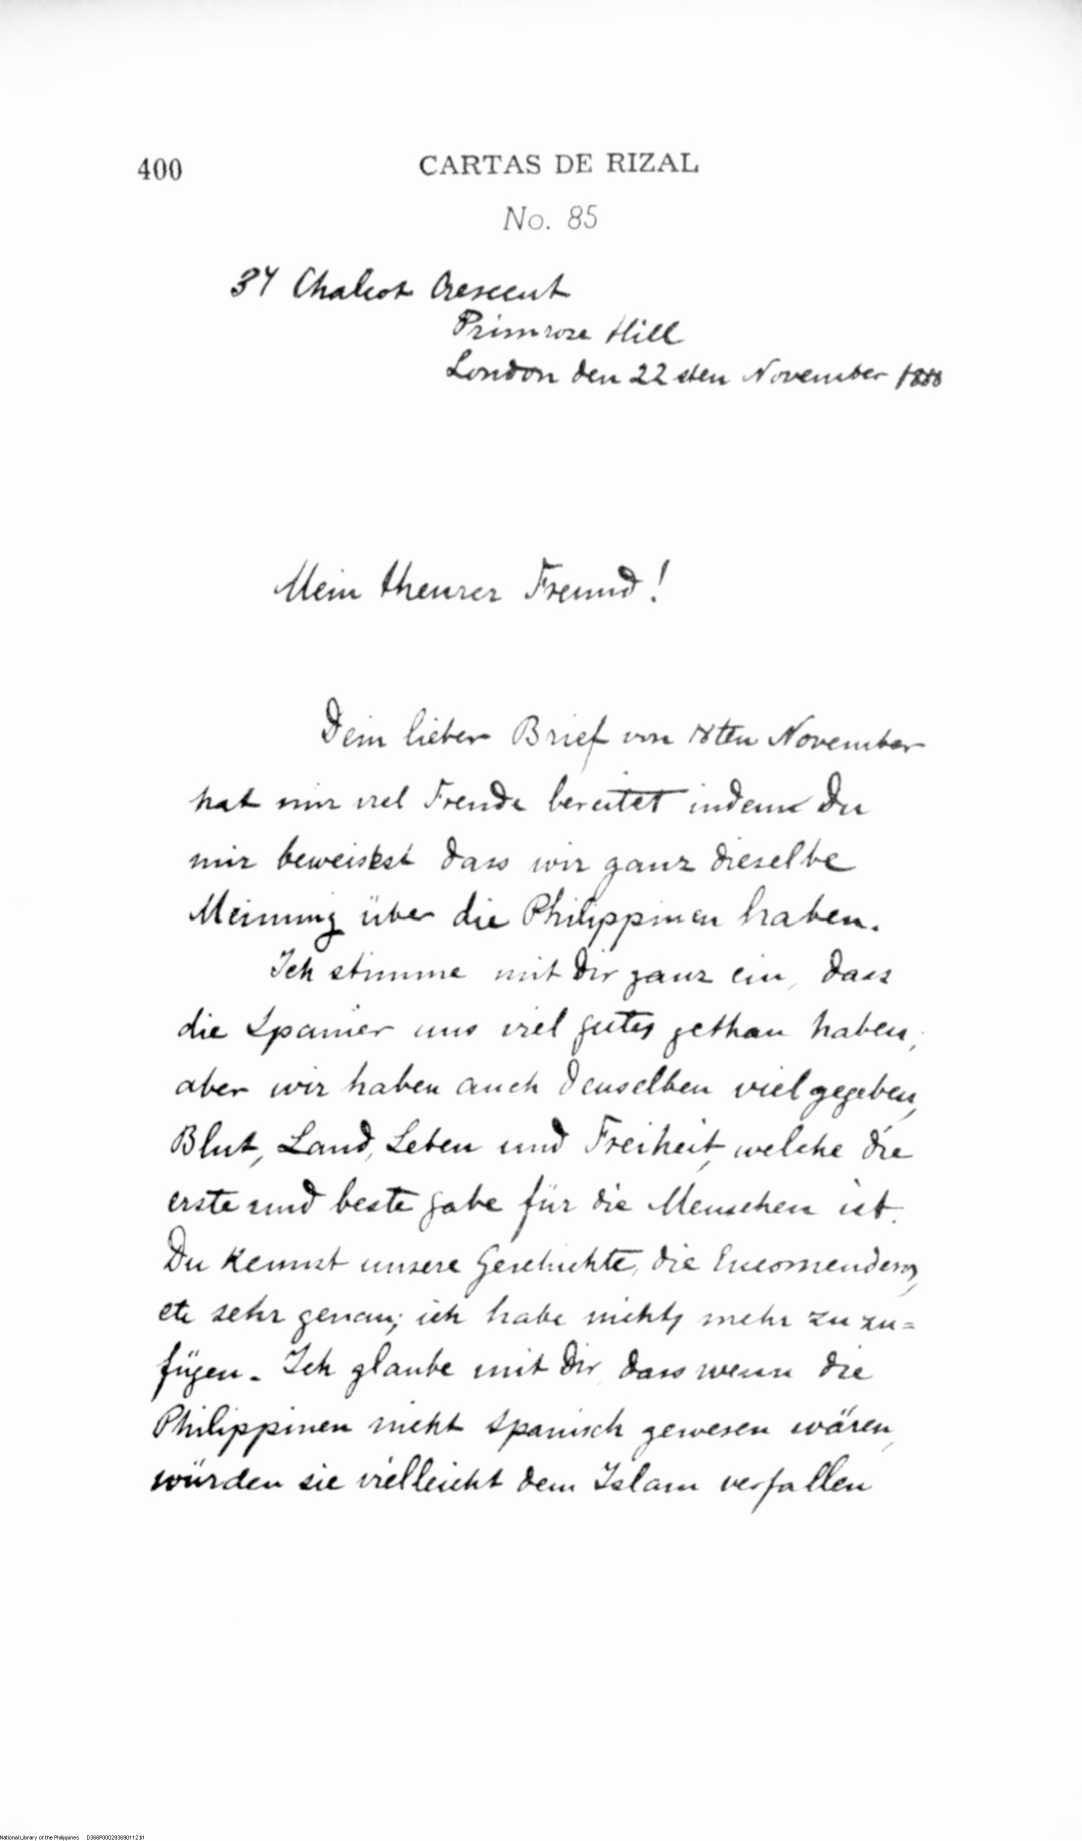 400
CARTAS DE RIZAL
No. 85
37 Chalcot Crescent
Primrose Hill
London den 22sten November 1888
Mein theurer Freund!
Dein lieber Brief von 18ten November
hat mir viel Freude bereitet indem Du
mir beweisest dass wir ganz dieselbe
Meinung über die Philippinen haben.
Ich stimme mit Dir ganz ein, dass
die Spanier uns viel gutes gethan haben;
aber wir haben auch denselben viel gegeben,
Blut, Land, Leben und Freiheit, welche die
erste und beste gabe für die Menschen ist.
Du kennst unsere Geschichte, die Encomenderos,
etc sehr genau; ich habe nichts mehr zu zu=
fügen. Ich glaube mit Dir, dass wenn die
Philippinen nicht Spanisch gewesen wären,
würden sie vielleicht dem Islam verfallen
National Library of the Philippines